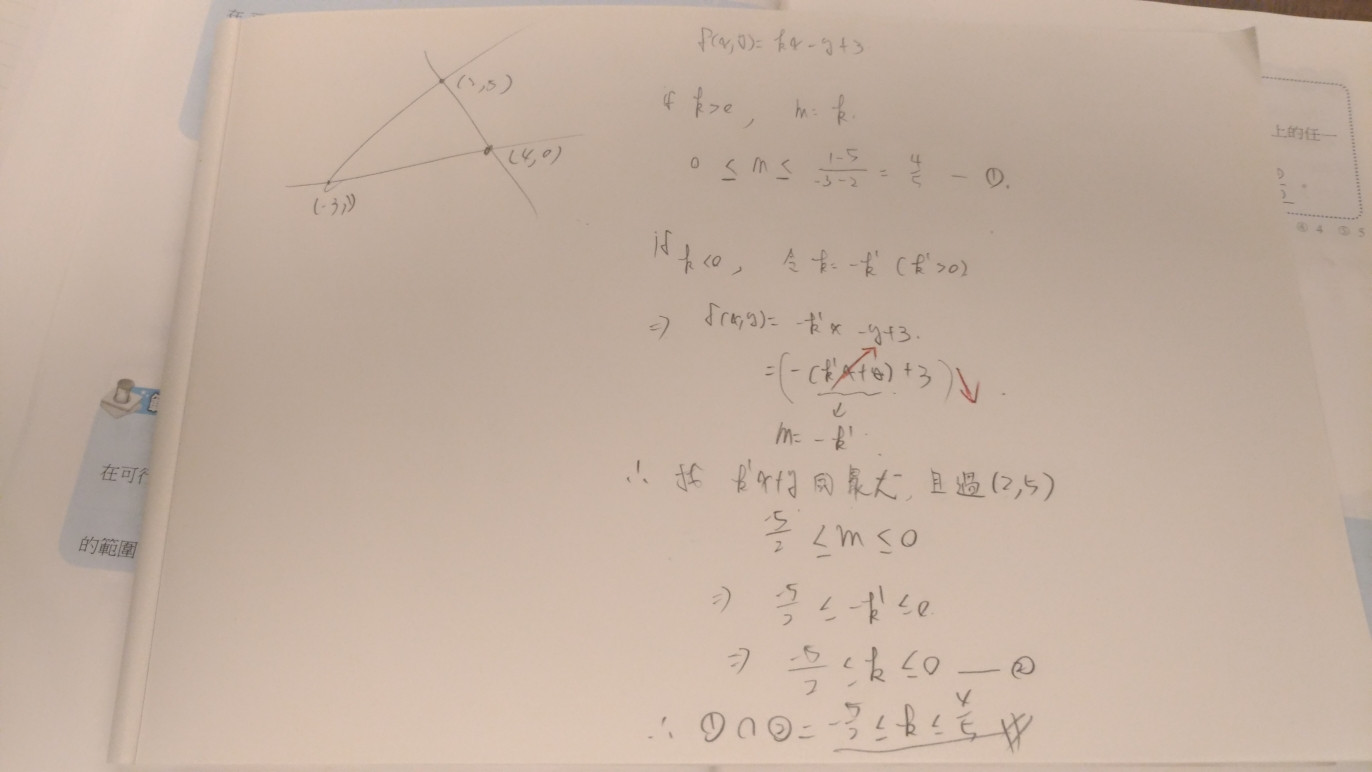 f(x,y)= kx-y+3
(2,5)
if k>0, m= k.
(4,0)
0 ≤ m ≤ \frac{1-5}{-3-2} = \frac{4}{5} — ①.
(-3,1)
if k<0, 令 k= -k' (k'>0)
⇒ f(x,y)= -k'x -y+3.
=(-(k'x+y)+3)
m= -k'.
∴ 求 k'x+y 的最大, 且過(2,5)
\frac{-5}{2} ≤ m ≤ 0
⇒ \frac{-5}{2} ≤ -k' ≤ 0
⇒ \frac{-5}{2} ≤ k ≤ 0 — ②
∴ ① ∩ ② = -\frac{5}{2} ≤ k ≤ \frac{4}{5}
上的任一
④ 4 ⑤ 5
在可行
的範圍